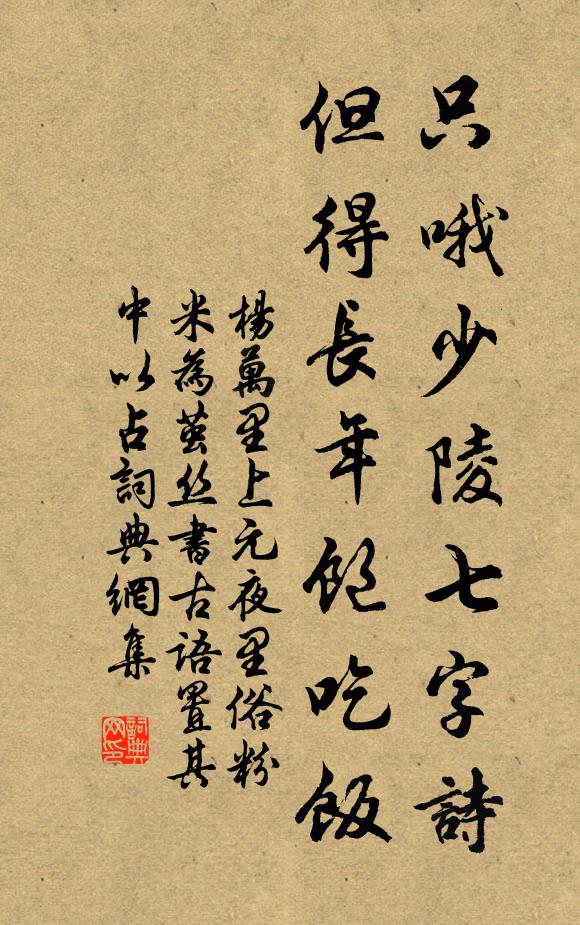 只哦少陵七字詩
但得長年飽吃飯
楊萬里上元夜里俗粉
米為繭絲書古語置其
中以占詞典網集
詞典网印